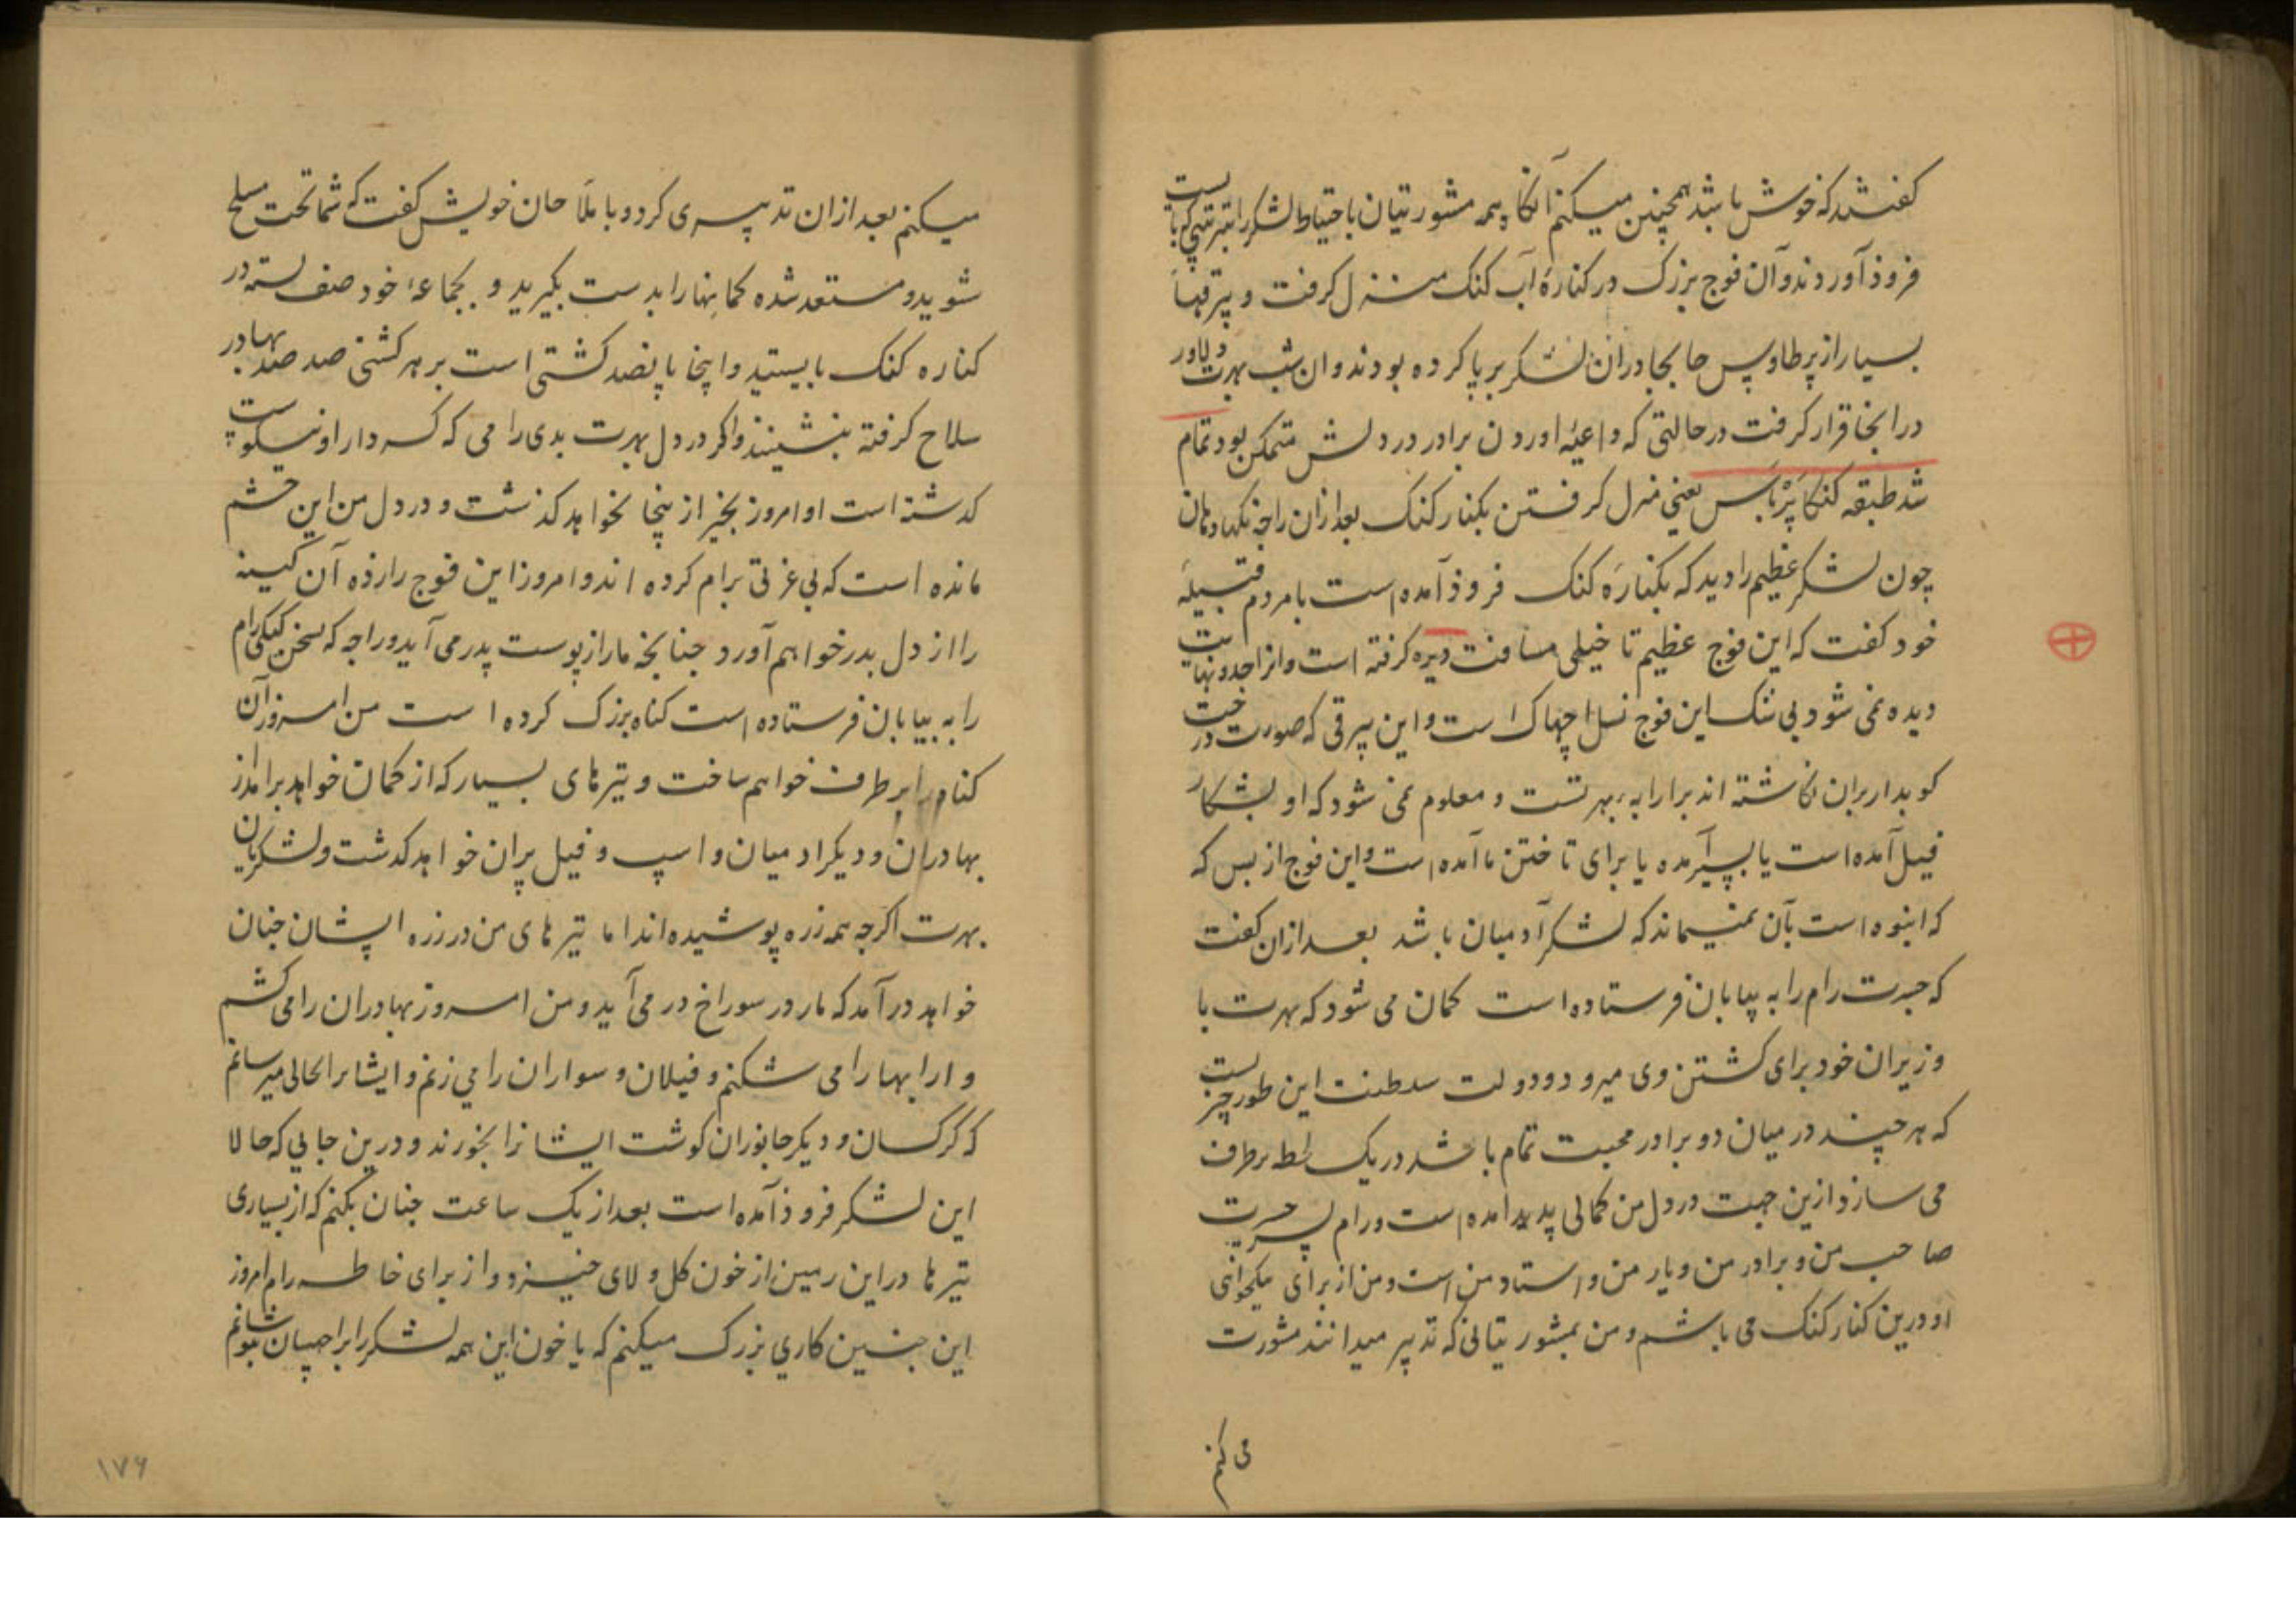 کفتند که خوش باشد همچنین میکنم آنکاه همه مشورتیان باحتیاط لشکر را بترتیبی که بایست
فروذ آوردند و آن فوج بزرک در کنارهٔ آب کنک منزل کرفت و بیرقها
بسیار از پر طاوس جابجا دران لشکر برپا کرده بودند و ان شب بهرت دلاور
در اینجا قرار کرفت در حالتی که داعیهٔ اوردن برادر در دلش متمکن بود تمام
شد طبقه کنکاپرباس یعنی منزل کرفتن بکنار کنک بعد ازان راجه نکهادمان
چون لشکر عظیم را دید که بکنارهٔ کنک فروذ آمده است با مردم قبیله
خود کفت که این فوج عظیم تا خیلی مسافت دیره کرفته است و انرا حد و نهایت
دیده نمی شود بی شک این فوج نسل اچهاک است و این بیرقی که صورت درخت
کوبدار بران نکاشته اند برارابهٔ بهرتست و معلوم نمی شود که او بشکار
فیل آمده است یا بسیر آمده یا برای تاختن ما آمده است و این فوج از بس که
که انبوه است بآن نمیماند که لشکر آدمیان باشد بعد ازان کفت
که جسرت رام را به بیابان فرستاده است کمان می شود که بهرت با
وزیران خود برای کشتن وی میرود و دولت سلطنت این طور چیزیست
که هر چند در میان دو برادر محبت تمام باشد در یک لحظه برطرف
می سازد ازین جهت در دل من کمالی پدید آمده است و رام پسر جسرت
صاحب من و برادر من و یار من و استاد من است و من از برای نیکخواهی
او درین کنار کنک می باشم و من بمشورتیانی که تدبیر میدانند مشورت
می کنم
میکنم بعد ازان تدبیری کرد و با ملاحان خویش کفت که شما تحت مسلح
شوید و مستعد شده کمانها را بدست بکیرید و بجماعهٔ خود صف بسته در
کناره کنک بایستید و اینجا پانصد کشتی است بر هر کشتی صد صد بهادر
سلاح کرفته بنشینند و اکر در دل بهرت بدی رامی که کردار او نیکوست
کدشته است او امروز بخیر از ینجا نخواهد کذشت و در دل من این خشم
مانده است که بی عزتی برام کرده اند و امروز این فوج را زده آن کینه
را از دل بدر خواهم آورد جنانجه مار از پوست بدر می آید و راجه که بسخن کیکی رام
را به بیابان فرستاده است کناه بزرک کرده است من امروز آن
کناه را برطرف خواهم ساخت و تیرهای بسیار که از کمان خواهد برامد از
بهادران و دیکر ادمیان و اسپ و فیل پران خواهد کدشت و لشکریان
بهرت اکرچه همه زره پوشیده اند اما تیرهای من در زره ایشان جنان
خواهد درآمد که مار در سوراخ در می آید و من امروز بهادران را می کشم
و ارابها را می شکنم و فیلان و سواران را می زنم و ایشانرا بحالی میرسانم
که کرکسان و دیکر جانوران کوشت ایشانرا بخورند و درین جایی که حالا
این لشکر فروذ آمده است بعد از یک ساعت جنان بکنم که از بسیاری
تیرها در این زمین از خون کل و لای خیزد و از برای خاطر رام امروز
این جنین کاری بزرک میکنم که با خون این همه لشکر را براجهسان بنوشانم
۱۷۶